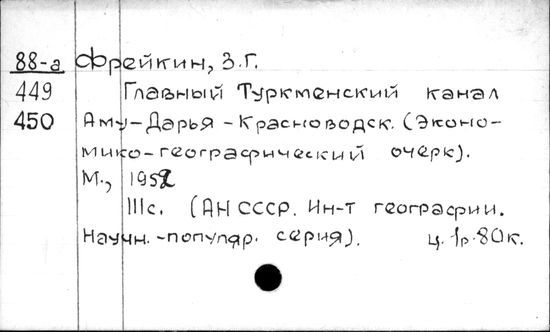 88-а Фрейкин, З.Г.
449 Главный Туркменский канал
450 Аму-Дарья-Красноводск. (Эконо-
мико-географический очерк).
М., 1952
111с. (АН СССР. Ин-т географии.
Научн.-популяр. серия). ц. 1р.80к.